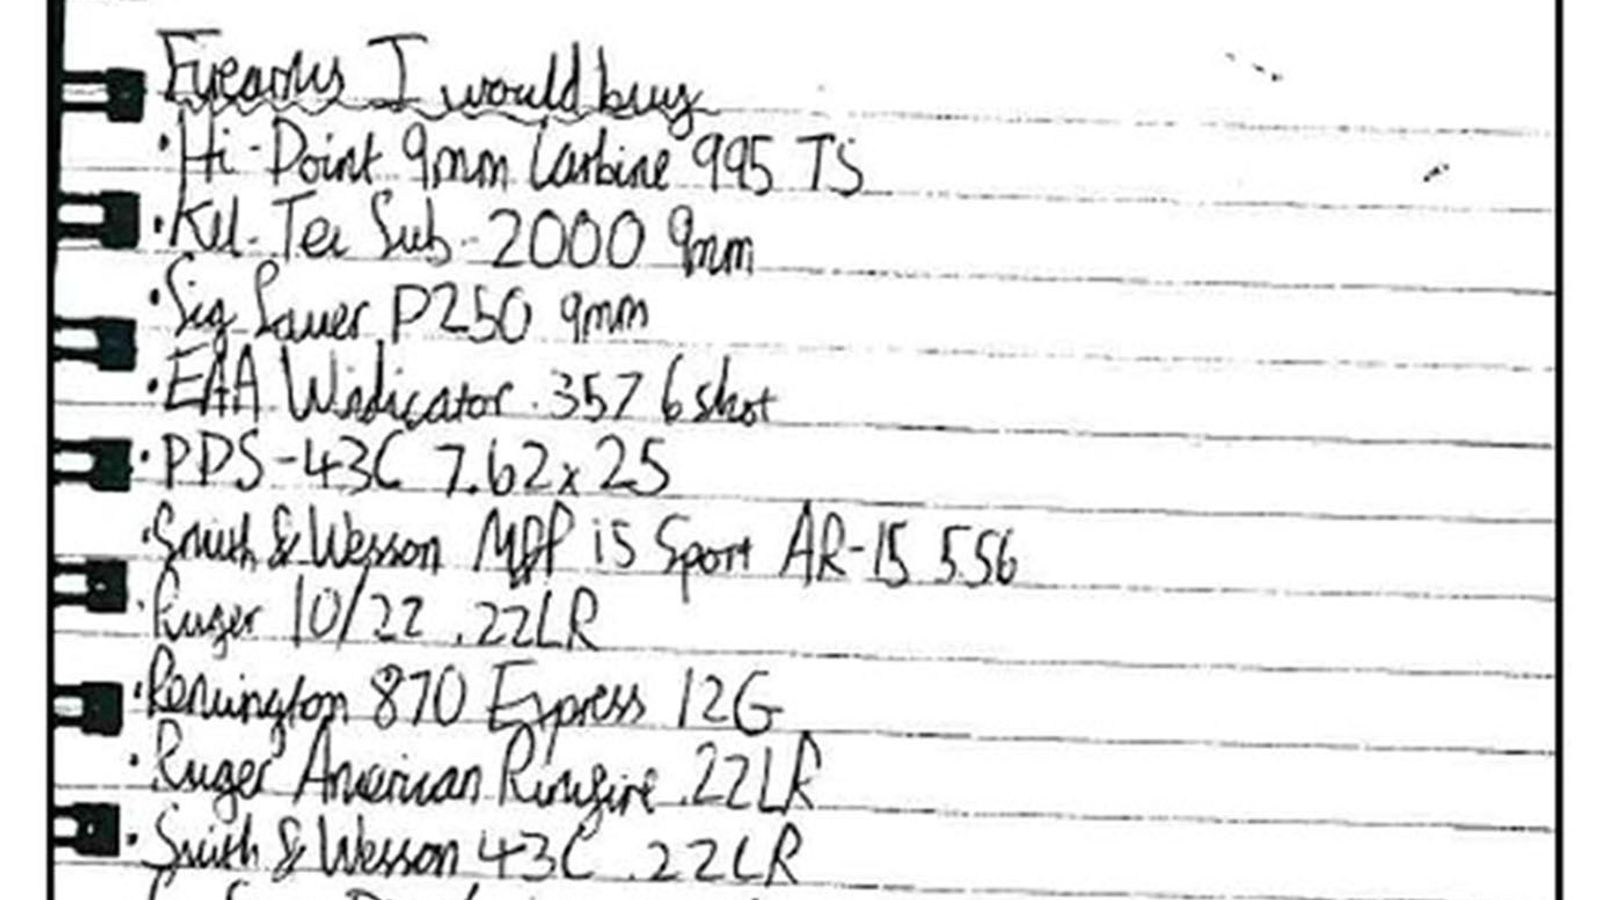 Firearms I would buy
· Hi-Point 9mm Carbine 995 TS
· Kel-Tec Sub-2000 9mm
· Sig Sauer P250 9mm
· EAA Windicator .357 6 shot
· PPS-43C 7.62x25
· Smith & Wesson M&P 15 Sport AR-15 5.56
· Ruger 10/22 .22LR
· Remington 870 Express 12G
· Ruger American Rimfire .22LR
· Smith & Wesson 43C .22LR